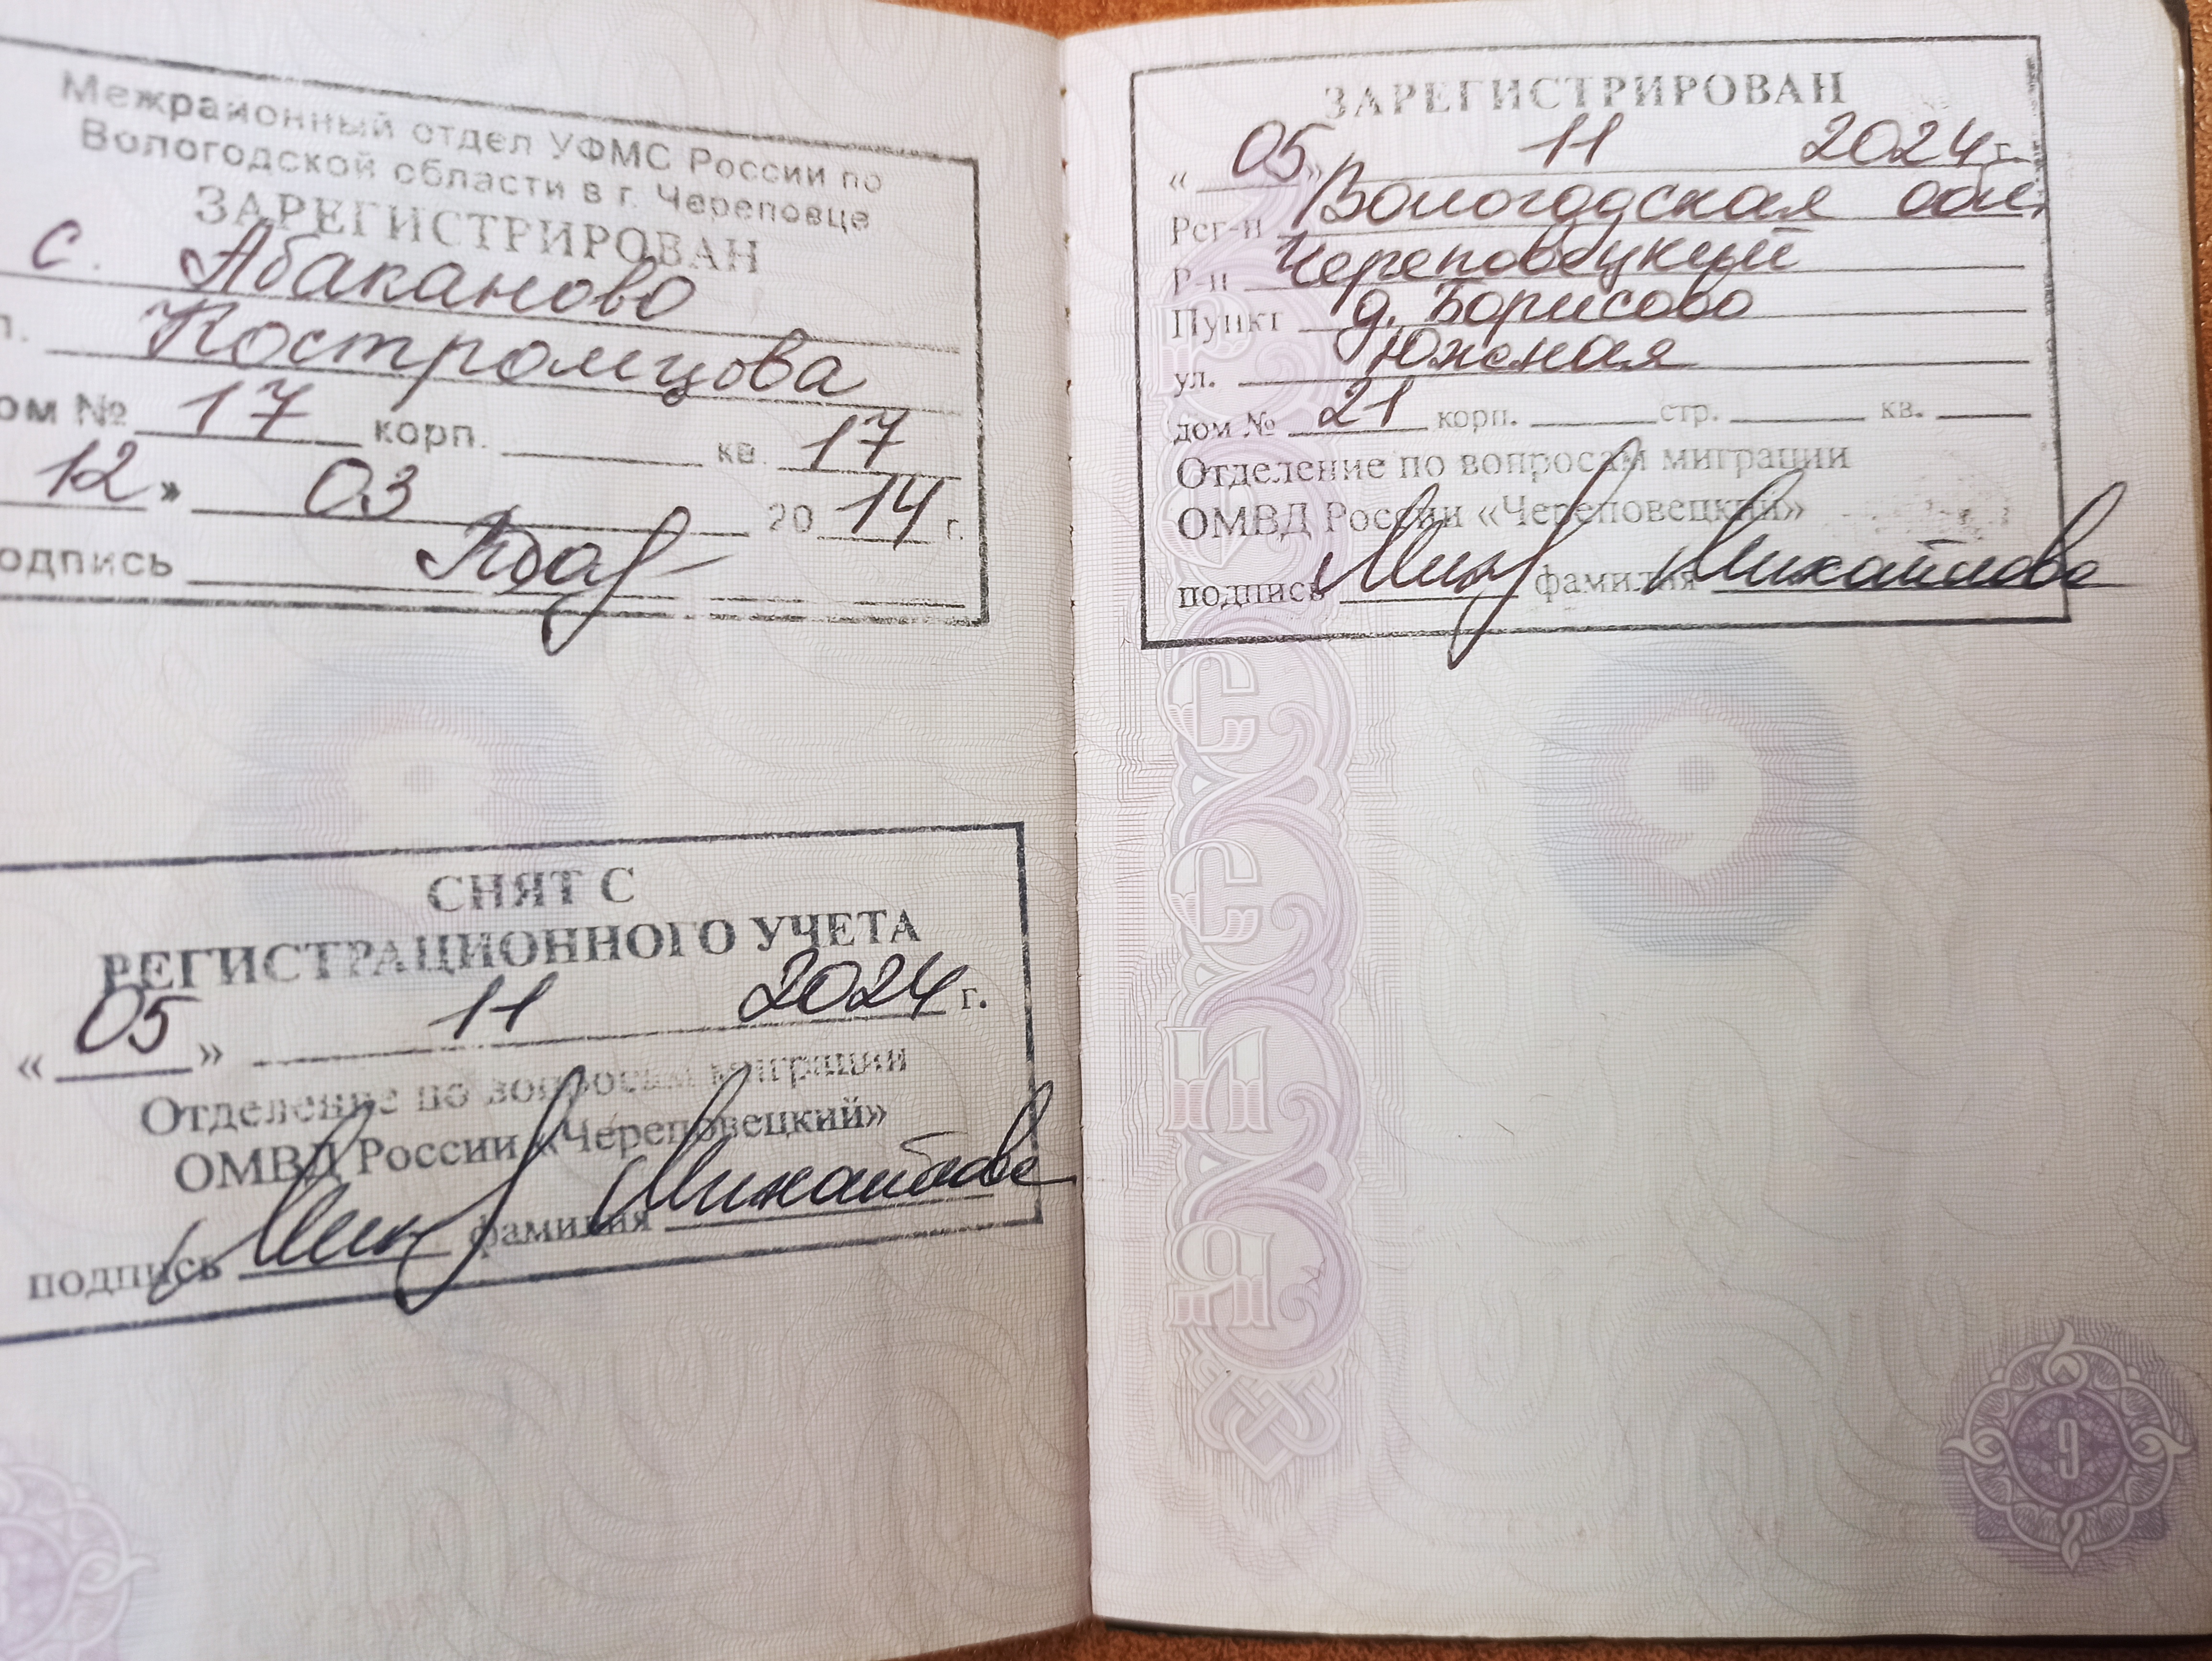 Межрайонный отдел УФМС России по
Вологодской области в г. Череповце
ЗАРЕГИСТРИРОВАН
с. Абаканово
л. Костромцова
ом № 17 корп. кв. 17
12» 03 2014 г.
одпись
СНЯТ С
РЕГИСТРАЦИОННОГО УЧЕТА
«05» 11 2024 г.
Отделение по вопросам миграции
ОМВД России «Череповецкий»
подпись фамилия Михайлова
ЗАРЕГИСТРИРОВАН
«05» 11 2024 г.
Рег-н Вологодская обл.
Р-н Череповецкий
Пункт д. Борисово
ул. Южная
дом № 21 корп. стр. кв.
Отделение по вопросам миграции
ОМВД России «Череповецкий»
подпись фамилия Михайлова
9